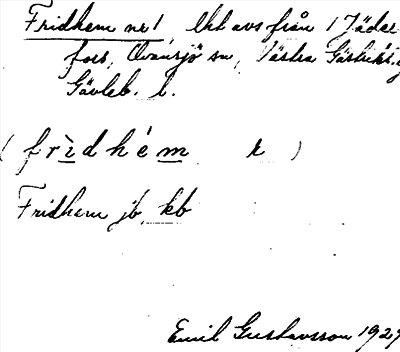 Fridhem nr 1, lht avs från 1 Jäder-
fors, Ovansjö sn, Västra Gästrikl.
Gävleb. l.
(frìdhém r)
Fridhem jb, kb
Emil Gustavsson 1929